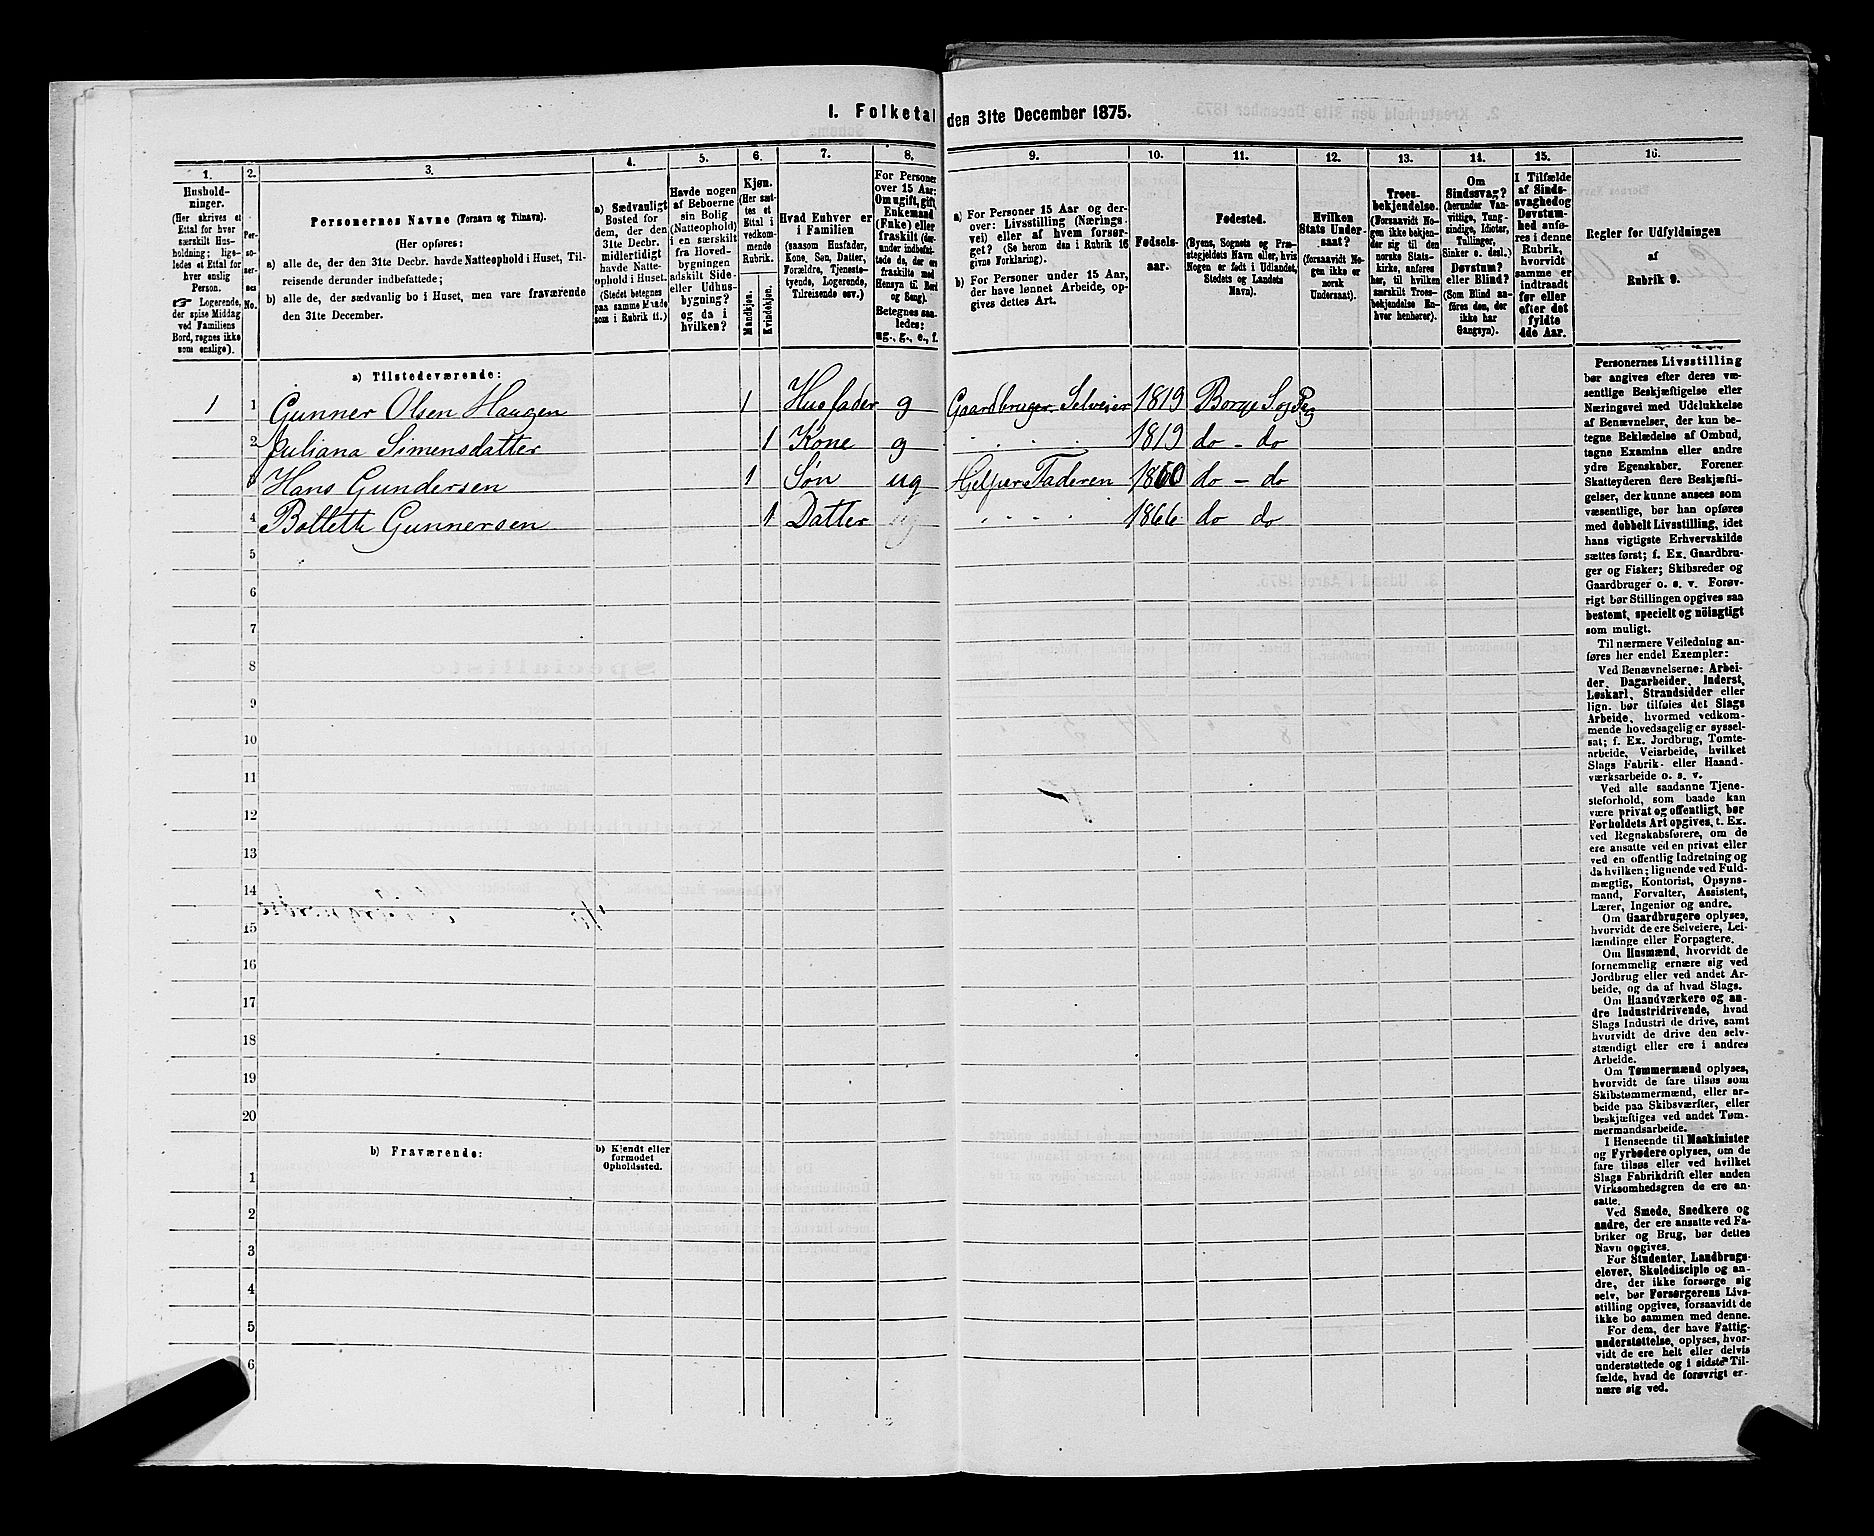 I. Folketal den 31te December 1875.
1.
Hushold-
ninger.
(Her skrives et
Ettal for hver
særskilt Hus-
holdning; lige-
ledes et Ettal for
hver enslig
Person.
☞ Logerende,
der spise Middag
ved Familiens
Bord, regnes ikke
som enslige).
2.
Per-
so-
ner-
nes
No.
3.
Personernes Navne (Fornavn og Tilnavn).
(Her opføres:
a) alle de, der den 31te Decbr. havde Natteophold i Huset, Til-
reisende derunder indbefattede;
b) alle de, der sædvanlig bo i Huset, men vare fraværende
den 31te December.
4.
a) Sædvanligt
Bosted for
dem, der den
31te Decbr.
midlertidigt
havde Natte-
ophold i Huset.
(Stedet betegnes
paa samme Maade
som i Rubrik 11.)
5.
Havde nogen
af Beboerne
sin Bolig
(Natteophold)
i en særskilt
fra Hoved-
bygningen
adskilt Side-
eller Udhus-
bygning?
og da i
hvilken?
6.
Kjøn.
(Her sæt-
tes et
Ettal i
vedkom-
mende
Rubrik.
Mandkjøn.
Kvindekjøn.
7.
Hvad Enhver er
i Familien
(saasom Husfader,
Kone, Søn, Datter,
Forældre, Tjeneste-
tyende, Logerende,
Tilreisende osv.)
8.
For Personer
over 15 Aar:
Om ugift, gift,
Enkemand
(Enke) eller
fraskilt (der-
under indbefat-
tede de, der ere
fraskilte med
Hensyn til Bord
og Seng).
Betegnes saa-
ledes:
ug., g., e., f.
9.
a) For Personer 15 Aar og der-
over: Livsstilling (Nærings-
vei) eller af hvem forsør-
get? (Se herom den i Rubrik 16
givne Forklaring).
b) For Personer under 15 Aar,
der have lønnet Arbeide, op-
gives dettes Art.
10.
Fødsels-
aar.
11.
Fødested.
(Byens, Sognets og Præ-
stegjeldets Navn eller, hvis
Nogen er født i Udlandet,
Stedets og Landets
Navn).
12.
Hvilken
Stats Under-
saat?
(forsaavidt No-
gen ikke er
norsk
Undersaat).
13.
Troes-
bekjendelse.
(Forsaavidt No-
gen ikke bekjen-
der sig til den
norske Stats-
kirke, anføres
her, til hvilken
særskilt Troes-
bekjendelse En-
hver henhører).
14.
Om
Sindssvag?
(herunder Van-
vittige, Tung-
sindige, Idioter,
Tullinger,
Sinker o. desl.)
Døvstum?
eller Blind?
(Som Blind an-
føres den, der
ikke har
Gangsyn).
15.
I Tilfælde
af Sinds-
svaghed og
Døvstum-
hed anfø-
res i denne
Rubrik,
hvorvidt
samme er
indtraadt
før eller
efter det
fyldte
4de Aar.
16.
Regler for Udfyldningen
af
Rubrik 9.
a) Tilstedeværende:
1 1 Gunner Olsen Haugen 1 Husfader g Gaardbruger Selveier 1819 Borge S og Pg
2 Juliana Simensdatter 1 Kone g . . . . 1819 do - do
3 Hans Gundersen 1 Søn ug Hjelper Faderen 1860 do - do
4 Bolleth Gunnersen 1 Datter ug . . . . 1866 do do
5
6
7
8
9
10
11
12
13
14
15
16
17
18
19
20
b) Fraværende:
b) Kjendt eller
formodet
Opholdssted.
1
2
3
4
5
6
Personernes Livsstilling
bør angives efter deres væ-
sentlige Beskjæftigelse eller
Næringsvei med Udelukkelse
af Benævnelser, der kun be-
tegne Beklædelse af Ombud,
tagne Examina eller andre
ydre Egenskaber. Forener
Skatteyderen flere Beskjæfti-
gelser, der kunne ansees som
væsentlige, bør han opføres
med dobbelt Livsstilling, idet
hans vigtigste Erhvervskilde
sættes først; f. Ex. Gaardbru-
ger og Fisker; Skibsreder og
Gaardbruger o. s. v. Forøv-
rigt bør Stillingen opgives saa
bestemt, specielt og nöiagtigt
som muligt.
Til nærmere Veiledning an-
føres her endel Exempler:
Ved Benævnelserne: Arbei-
der, Dagarbeider, Inderst,
Løskarl, Strandsidder eller
lign. bør tilføies det Slags
Arbeide, hvormed vedkom-
mende hovedsagelig er syssel-
sat; f. Ex. Jordbrug, Tomte-
arbeide, Veiarbeide, hvilket
Slags Fabrik- eller Haand-
værksarbeide o. s. v.
Ved alle saadanne Tjene-
steforhold, som baade kan
være privat og offentligt, bør
Forholdets Art opgives, t. Ex.
ved Regnskabsførere, om de
ere ansatte ved en privat eller
ved en offentlig Indretning og
da hvilken; lignende ved Fuld-
mægtig, Kontorist, Opsyns-
mand, Forvalter, Assistent,
Lærer, Ingeniør og andre.
Om Gaardbrugere oplyses,
hvorvidt de ere Selveiere, Lei-
lændinge eller Forpagtere.
Om Husmænd, hvorvidt de
fornemmelig ernære sig ved
Jordbrug eller ved andet Ar-
beide, og da af hvad Slags.
Om Haandværkere og an-
dre Industridrivende, hvad
Slags Industri de drive, samt
hvorvidt de drive den selv-
stændigt eller ere i andres
Arbeide.
Om Tømmermænd oplyses,
hvorvidt de fare tilsøs som
Skibstømmermænd, eller ar-
beide paa Skibsværfter, eller
beskjæftiges ved andet Tøm-
mermandsarbeide.
I Henseende til Maskinister
og Fyrbødere oplyses, om de
fare tilsøs eller ved hvilket
Slags Fabrikdrift eller anden
Virksomhedsgren de ere an-
satte.
Ved Smede, Snedkere og
andre, der ere ansatte ved Fa-
briker og Brug, bør dettes
Navn opgives.
For Studenter, Landbrugs-
elever, Skoledisciple og an-
dre, der ikke forsørge sig
selv, bør Forsørgerens Livs-
stilling opgives, forsaavidt de
ikke bo sammen med denne.
For dem, der have Fattig-
understøttelse, oplyses, hvor-
vidt de ere helt eller delvis
understøttede og i sidste Til-
fælde, hvad de forøvrigt er-
nære sig ved.